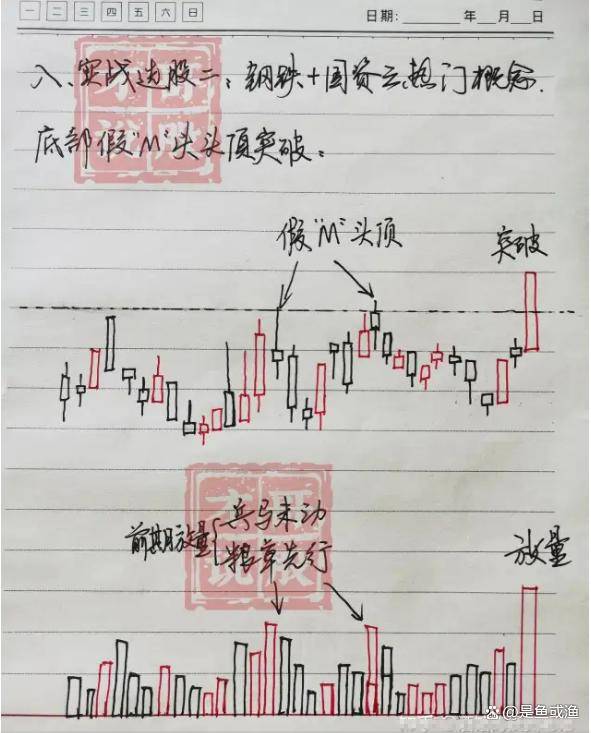 一 二 三 四 五 六 日
日期: 年 月 日
八、实战选股二:钢铁+国资云热门概念.
底部假"M"头头顶突破:
假"M"头顶
突破
前期放量{兵马未动
粮草先行
放量
@是鱼或渔